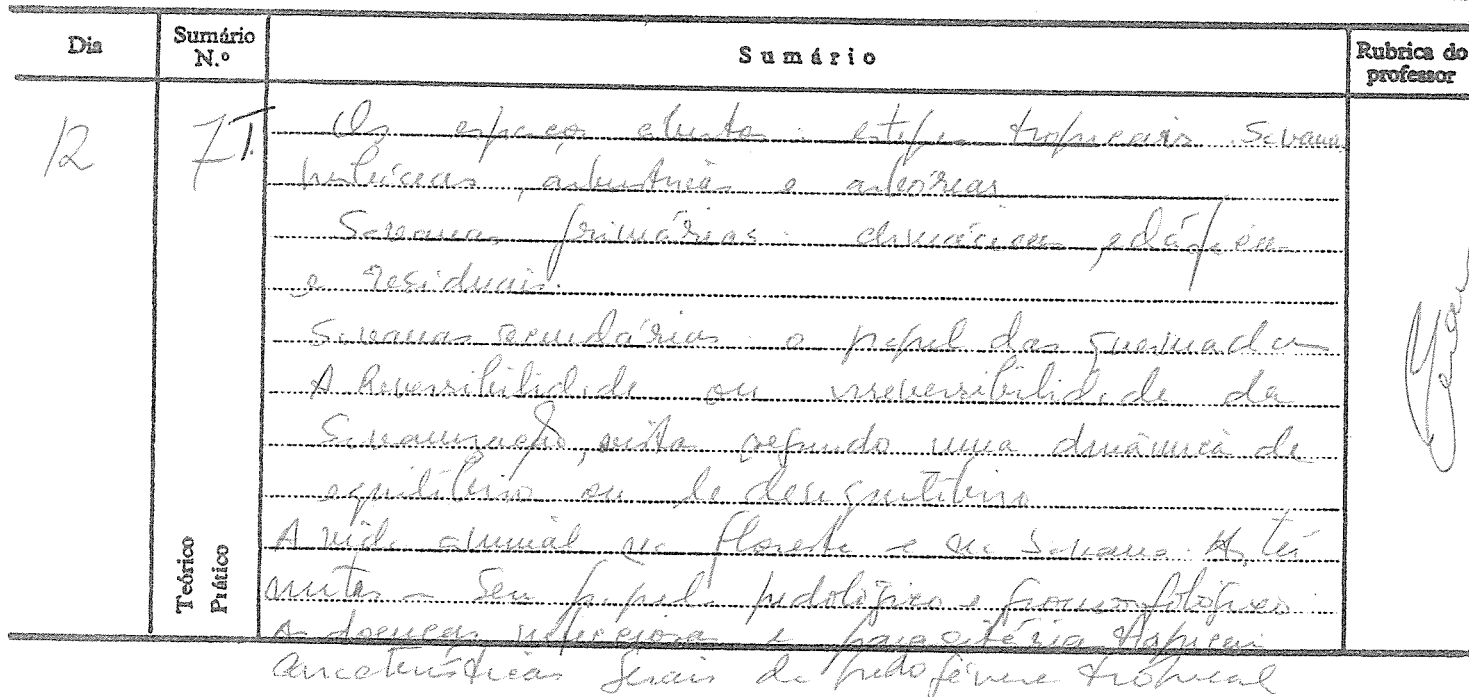 Dia Sumário N.º Sumário Rubrica do professor
12 7 T. Os espaços abertos: estepes tropicais. Savanas
herbáceas, arbustivas e arbóreas
Savanas primárias: climácicas, edáficas
e residuais.
Savanas secundárias: o papel das queimadas
A Reversibilidade ou irreversibilidade da
Savanização, vista segundo uma dinâmica de
equilíbrio ou de desequilíbrio
A vida animal na floresta e na Savana. As tér
mitas e seu papel pedológico e geomorfológico.
As doenças infecciosas e parasitárias tropicais
Características gerais da pedogénese tropical
Teórico
Prático